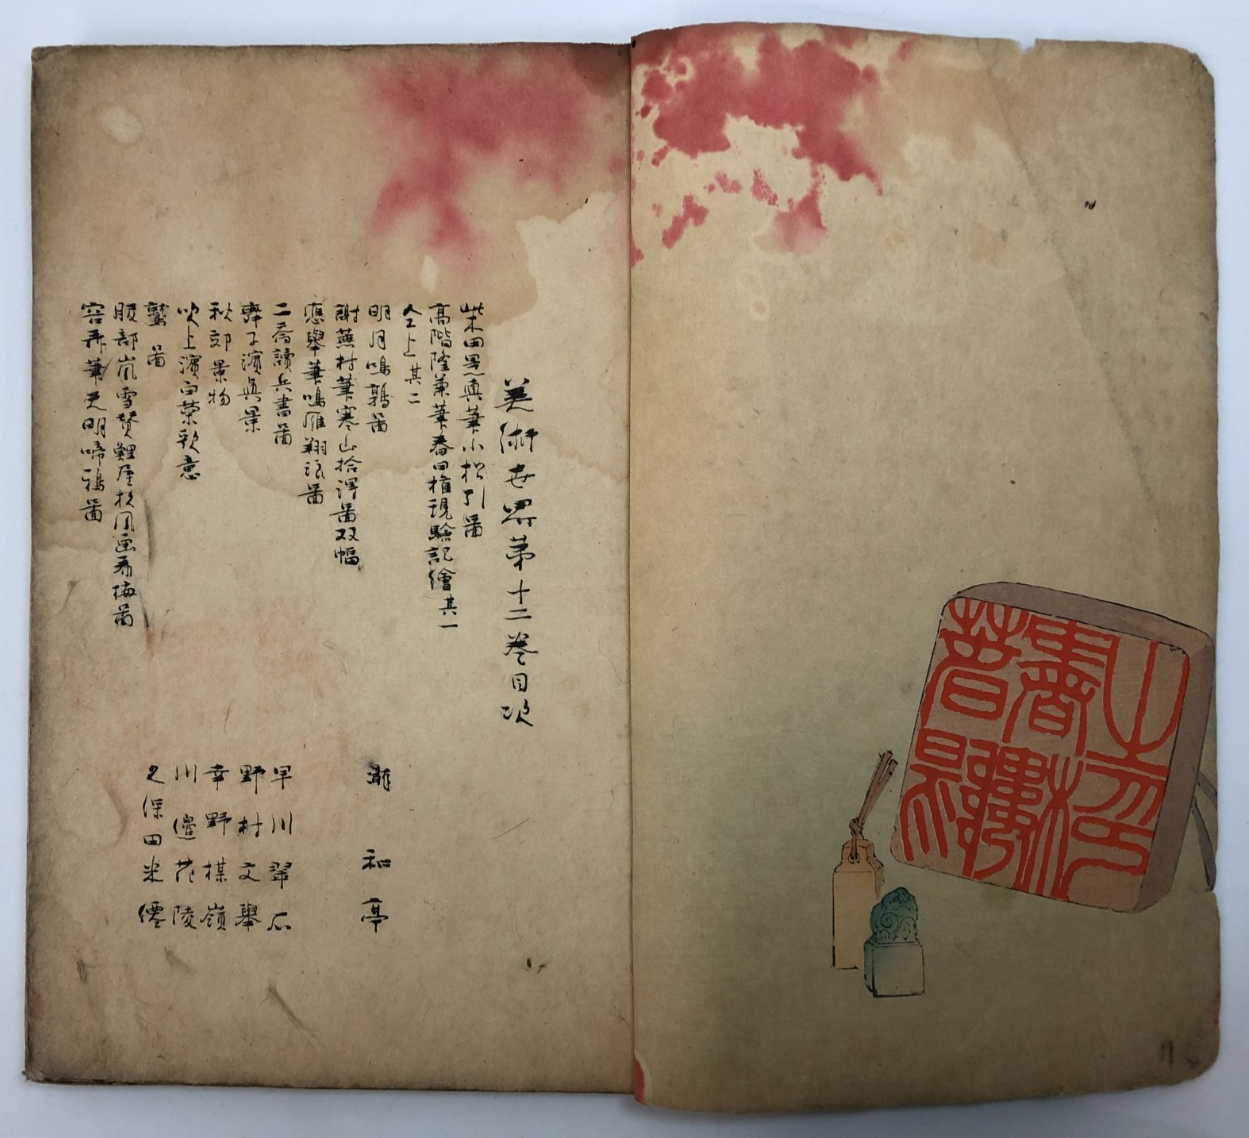 美術世界第十二巻目次
柴田是真筆小松引圖
高階隆兼筆春日権現験記繪其一
仝上其二
明月鳴鶉圖 瀧和亭
謝蕪村筆寒山拾得圖双幅
應舉筆鳴雁翔浪圖
二喬讀兵書圖 早川翠石
舞子濱真景 野村文舉
秋郊景物 幸野楳嶺
吹上濱白菊歌意 川邊花陵
鷲圖 久保田米僊
服部嵐雪賛鯉屋杉風画看梅圖
容斎筆 明啼鴉圖